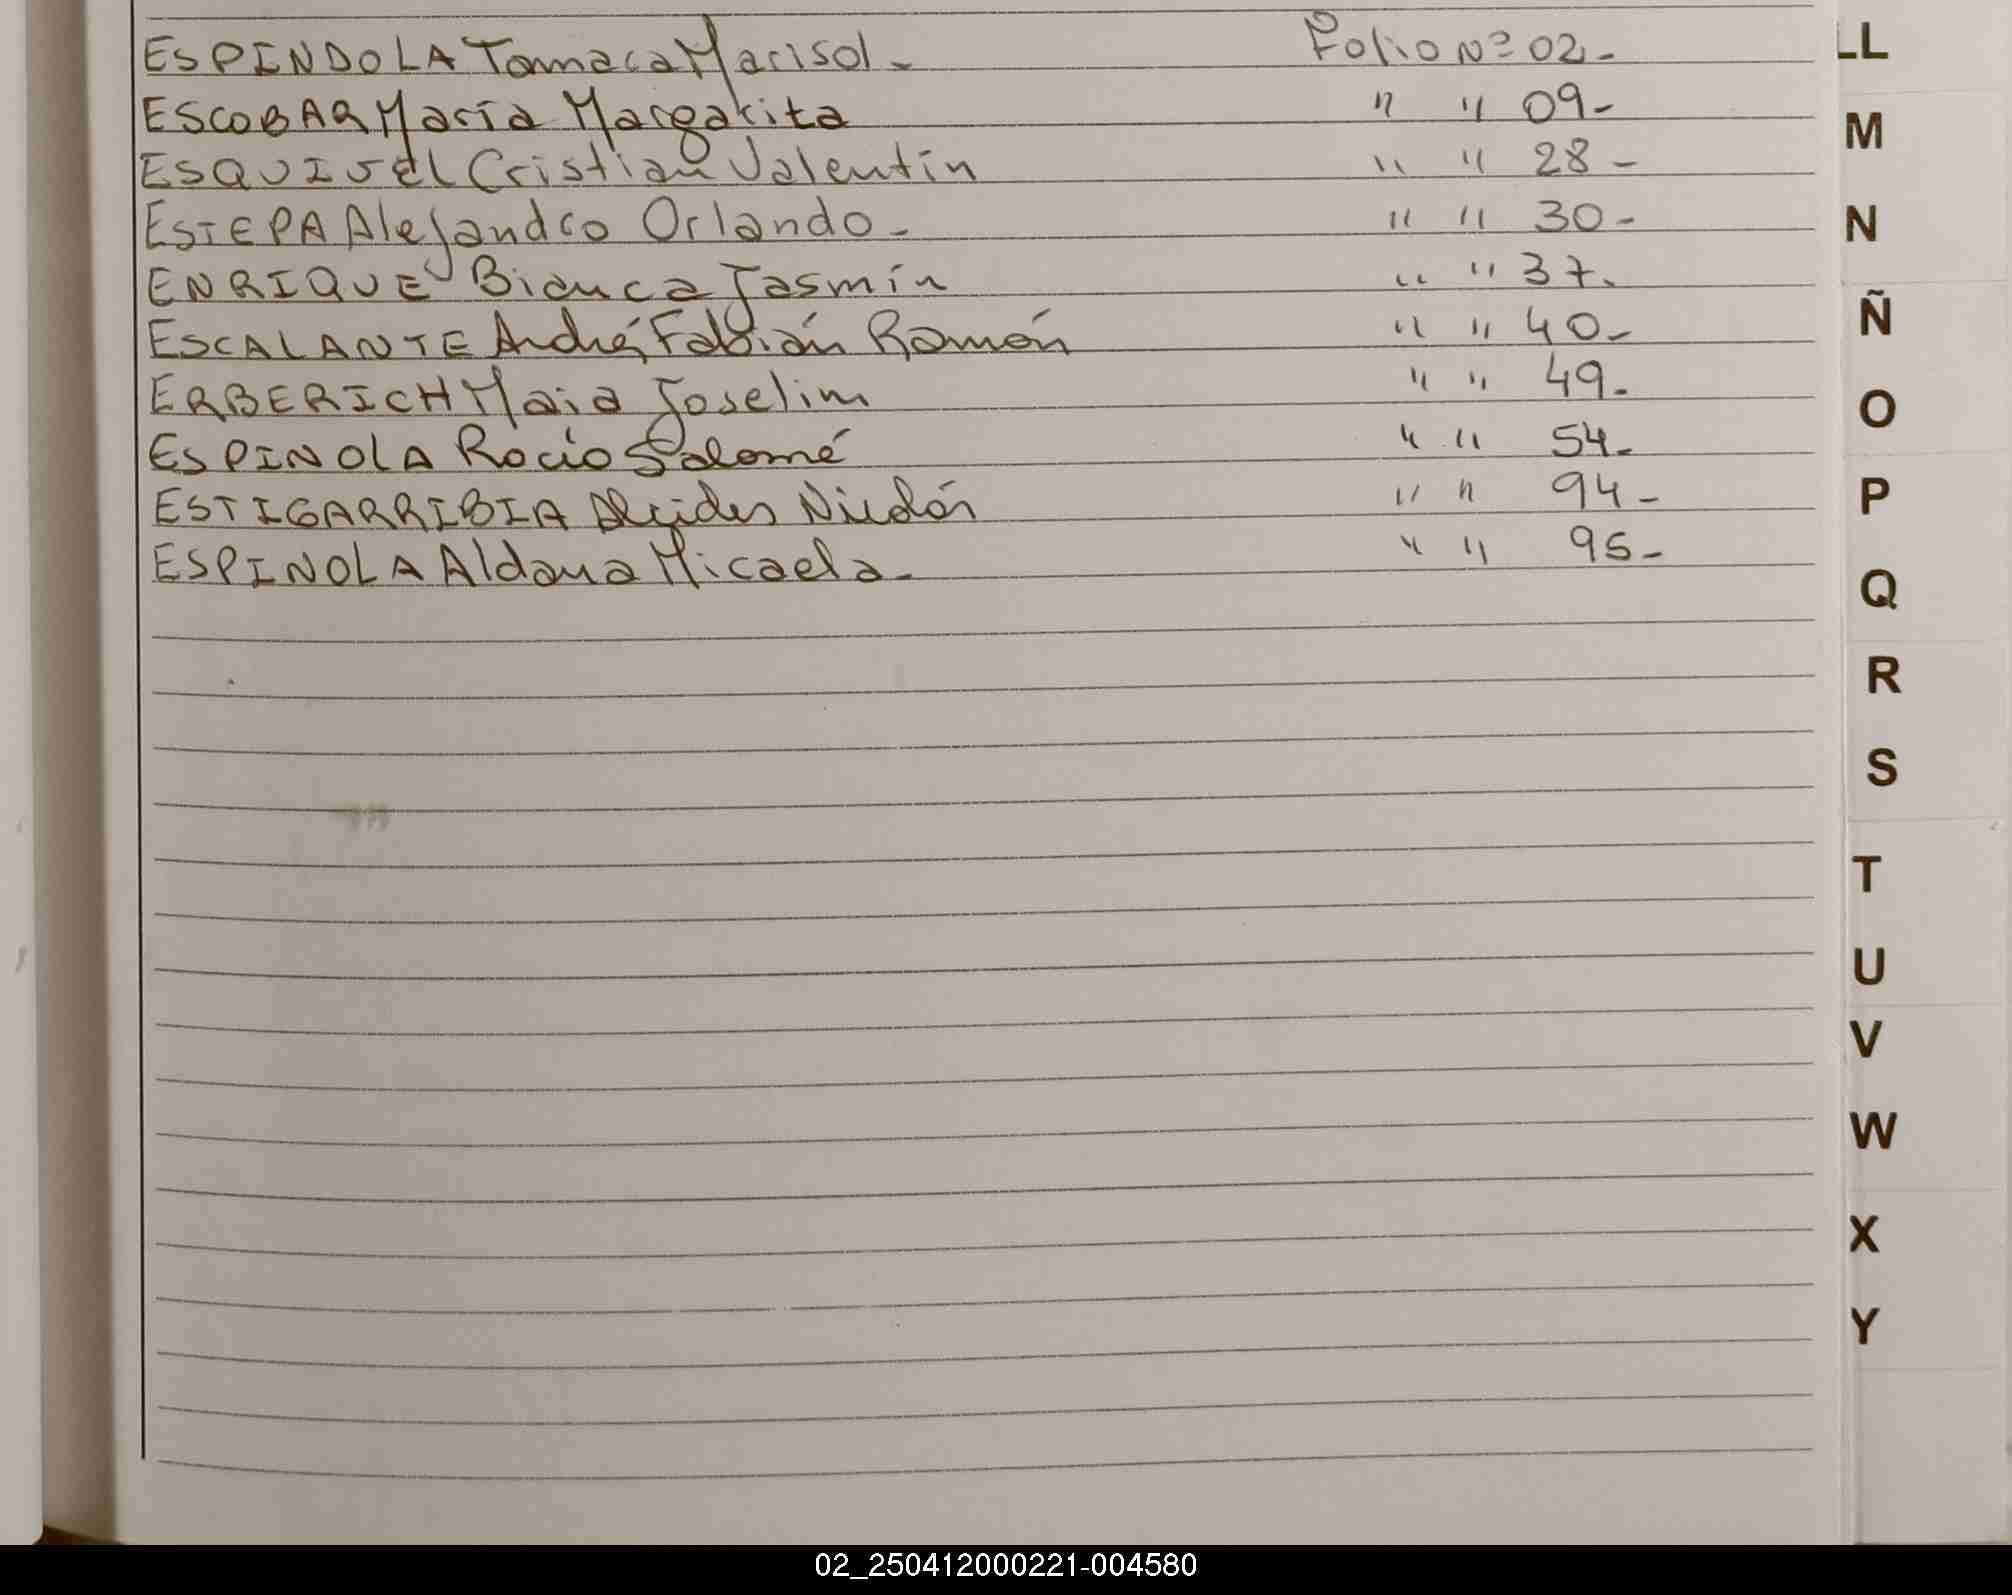 ESPINDOLA Tamara Marisol - Folio Nº 02 -
ESCOBAR María Margarita " " 09 -
ESQUIVEL Cristian Valentín " " 28 -
ESTEPA Alejandro Orlando - " " 30 -
ENRIQUE Bianca Jasmín " " 37.
ESCALANTE André Fabián Ramón " " 40 -
ERBERICH Maia Joselim " " 49 -
ESPINOLA Rocío Salomé " " 54 -
ESTIGARRIBIA Alcides Nicolás " " 94 -
ESPINOLA Aldana Micaela - " " 95 -
LL
M
N
Ñ
O
P
Q
R
S
T
U
V
W
X
Y
02_250412000221-004580